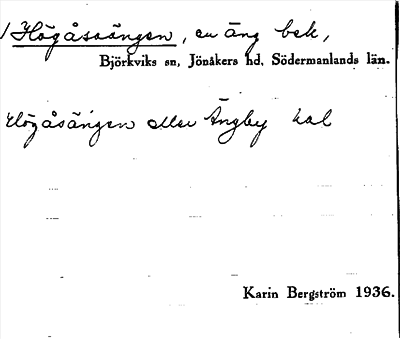 Högåsaängen, en äng bek,
Björkviks sn, Jönåkers hd, Södermanlands län.
Högåsängen eller Ängby kal
Karin Bergström 1936.